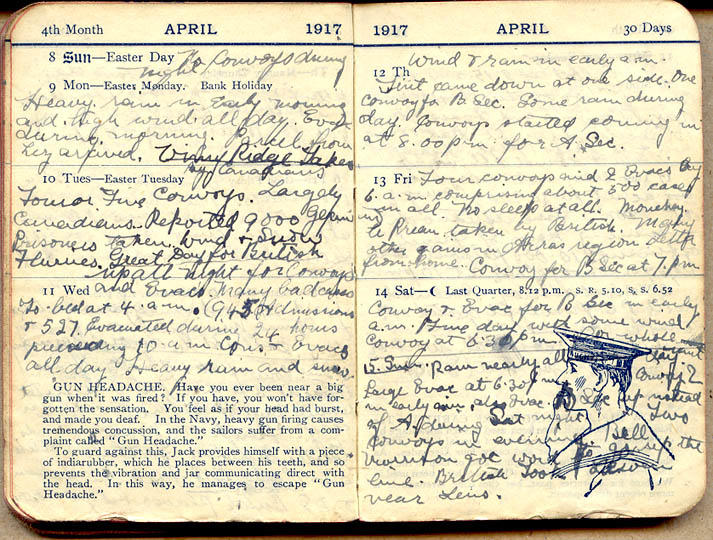 4th Month APRIL 1917
8 Sun—Easter Day No Convoys during
night
9 Mon—Easter Monday. Bank Holiday
Heavy rain in Early morning
and high wind all day. Evac
during morning. Parcel from
Liz arrived. Vimy Ridge Taken
by Canadians
10 Tues—Easter Tuesday
Four or Five Convoys. Largely
Canadians. Reported 9000 Germ
Prisoners taken. Wind & Snow
Flurries. Great Day for British
up all night for Convoys
11 Wed and Evacs. Many bad cases
To bed at 4 a.m. (945 Admissions
& 527 Evacuated during 24 hours
preceeding 10 a.m. Cons. & Evacs
all day. Heavy rain and snow.
GUN HEADACHE. Have you ever been near a big
gun when it was fired? If you have, you won't have for-
gotten the sensation. You feel as if your head had burst,
and made you deaf. In the Navy, heavy gun firing causes
tremendous concussion, and the sailors suffer from a com-
plaint called "Gun Headache."
To guard against this, Jack provides himself with a piece
of indiarubber, which he places between his teeth, and so
prevents the vibration and jar communicating direct with
the head. In this way, he manages to escape "Gun
Headache."
1917 APRIL 30 Days
Wind & rain in early a.m.
12 Th
Tent came down at one side. One
convoy for B Sec. Some rain during
day. Convoys started coming in
at 8.00 p.m. for A. Sec.
13 Fri Four convoys and 2 Evacs by
6 a.m. comprising about 500 cases
in all. No sleep at all. Monchy
le Preux taken by British. Many
other gains in Arras region. Letter
from home. Convoy for B Sec at 7 p.m
14 Sat—☾ Last Quarter, 8.12 p.m. S. R. 5.10, S. S. 6.52
Convoy & Evac for B Sec in early
a.m. Fine day with some wind
Convoy at 6.30 p.m. whole
15. Sun. Rain nearly all
Large Evac at 6.30 Convoy
in early am, also Evac. Sec up instead
of A during Sat night. Two
Convoys in evening. Bell
Morrison got word to
line. British took
near Lens.